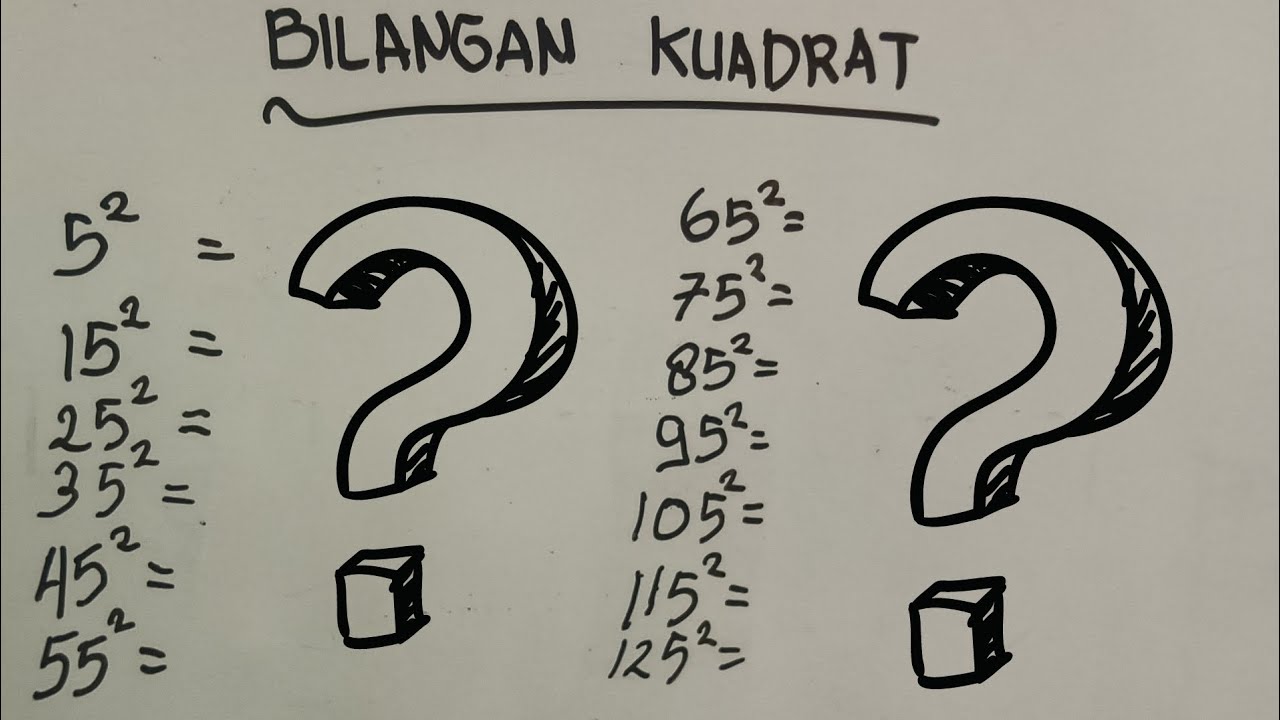 BILANGAN KUADRAT
5² =
15² =
25² =
35² =
45² =
55² =
65² =
75² =
85² =
95² =
105² =
115² =
125² =